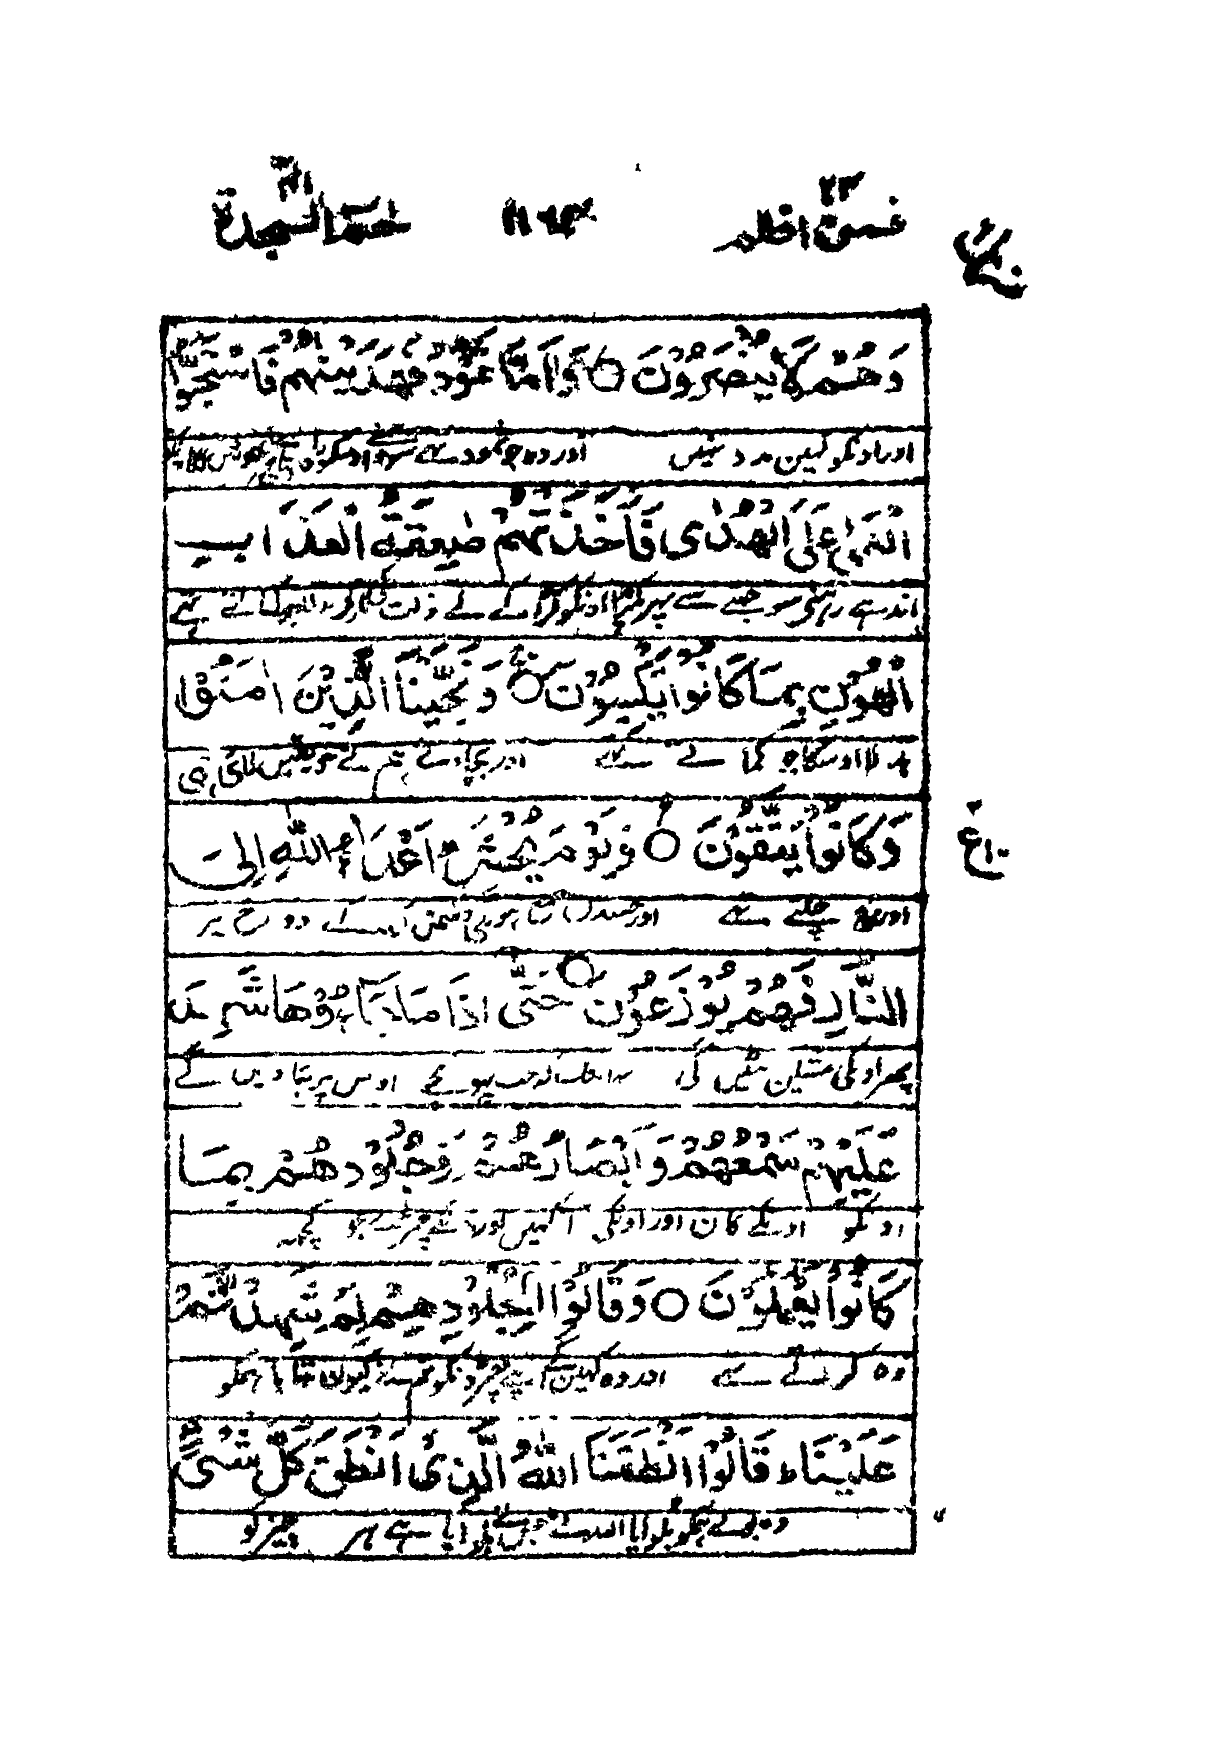 فمن اظلم ٢٤
حم السجدة ٤١
وَهُمْ لَا يُنْصَرُوْنَ ○ وَاَمَّا ثَمُوْدُ فَهَدَيْنٰهُمْ فَاسْتَحَبُّوا
اور اونکو کہین مدد نہیں اور وہ جو ثمود تھے سو
الْعَمٰى عَلَى الْهُدٰى فَاَخَذَتْهُمْ صٰعِقَةُ الْعَذَابِ
اندھے رہنا سوجھنے سے پھر پکڑا اونکو کڑاکے نے ذلت کی
الْهُوْنِ بِمَا كَانُوْا يَكْسِبُوْنَ ○ وَنَجَّيْنَا الَّذِيْنَ اٰمَنُوْا
بدلا اوسکا جو کماتے تھے اور بچا دئے ہم نے جو یقین لائے تھے
وَكَانُوْا يَتَّقُوْنَ ○ وَيَوْمَ يُحْشَرُ اَعْدَآءُ اللّٰهِ اِلَى
اور بچ چلتے تھے اور جسدن جمع ہونگے دشمن اللہ کے دوزخ پر
النَّارِ فَهُمْ يُوْزَعُوْنَ ○ حَتّٰى اِذَا مَا جَآءُوْهَا شَهِدَ
پھر اونکی مثلین بٹیں گی یہانتک کہ جب پہونچے اوس پر بتا دیں گے
عَلَيْهِمْ سَمْعُهُمْ وَاَبْصَارُهُمْ وَجُلُوْدُهُمْ بِمَا
اونکو اونکے کان اور اونکی آنکھیں اور اونکے چمڑے جو کچھ
كَانُوْا يَعْمَلُوْنَ ○ وَقَالُوْا لِجُلُوْدِهِمْ لِمَ شَهِدْتُّمْ
وہ کرتے تھے اور وہ کہین گے اپنے چمڑونکو تم نے کیوں بتایا ہمکو
عَلَيْنَا ط قَالُوْا اَنْطَقَنَا اللّٰهُ الَّذِىْ اَنْطَقَ كُلَّ شَىْءٍ
وہ بولے ہمکو بلوایا اللہ نے جس نے بلوایا ہے ہر چیز کو